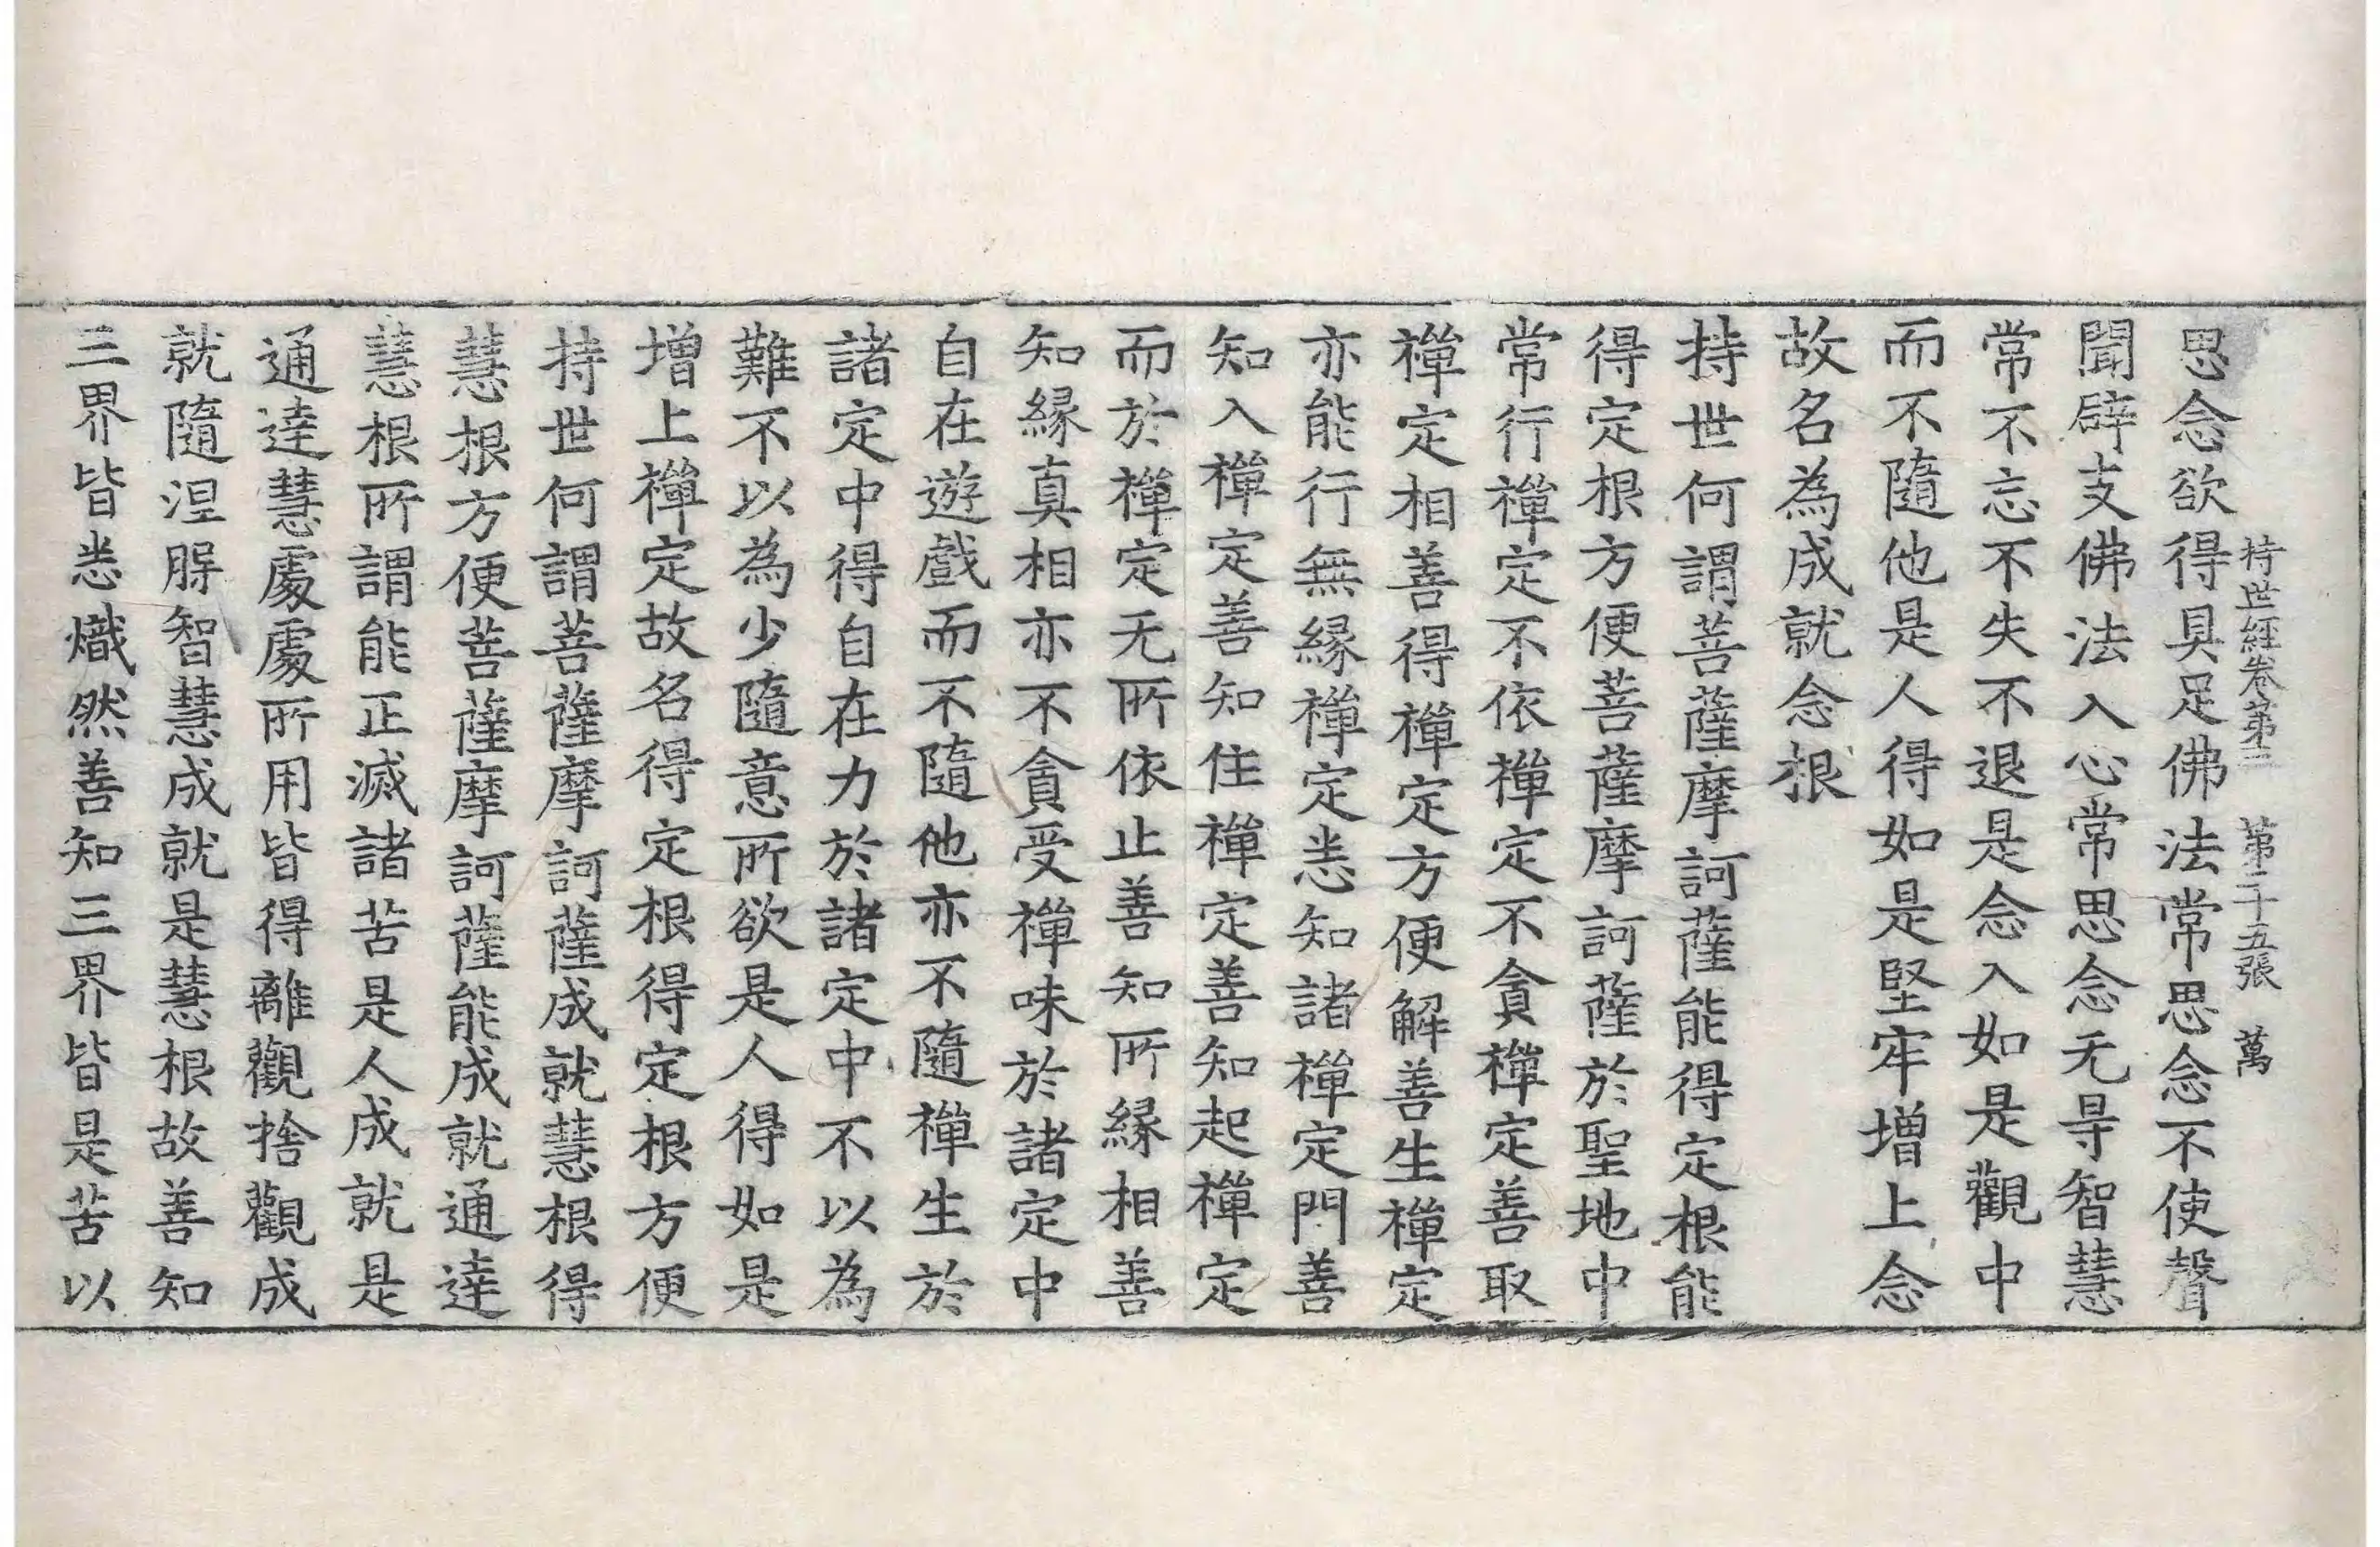 持世經卷第三 第二十五張 萬
思念欲得具足佛法常思念不使聲
聞辟支佛法入心常思念无㝵智慧
常不忘不失不退是念入如是觀中
而不隨他是人得如是堅牢增上念
故名為成就念根
持世何謂菩薩摩訶薩能得定根能
得定根方便菩薩摩訶薩於聖地中
常行禪定不依禪定不貪禪定善取
禪定相善得禪定方便解善生禪定
亦能行無緣禪定悉知諸禪定門善
知入禪定善知住禪定善知起禪定
而於禪定无所依止善知所緣相善
知緣真相亦不貪受禪味於諸定中
自在遊戲而不隨他亦不隨禪生於
諸定中得自在力於諸定中不以為
難不以為少隨意所欲是人得如是
增上禪定故名得定根得定根方便
持世何謂菩薩摩訶薩成就慧根得
慧根方便菩薩摩訶薩能成就通達
慧根所謂能正滅諸苦是人成就是
通達慧處處所用皆得離觀捨觀成
就隨涅槃智慧成就是慧根故善知
三界皆悉熾然善知三界皆是苦以